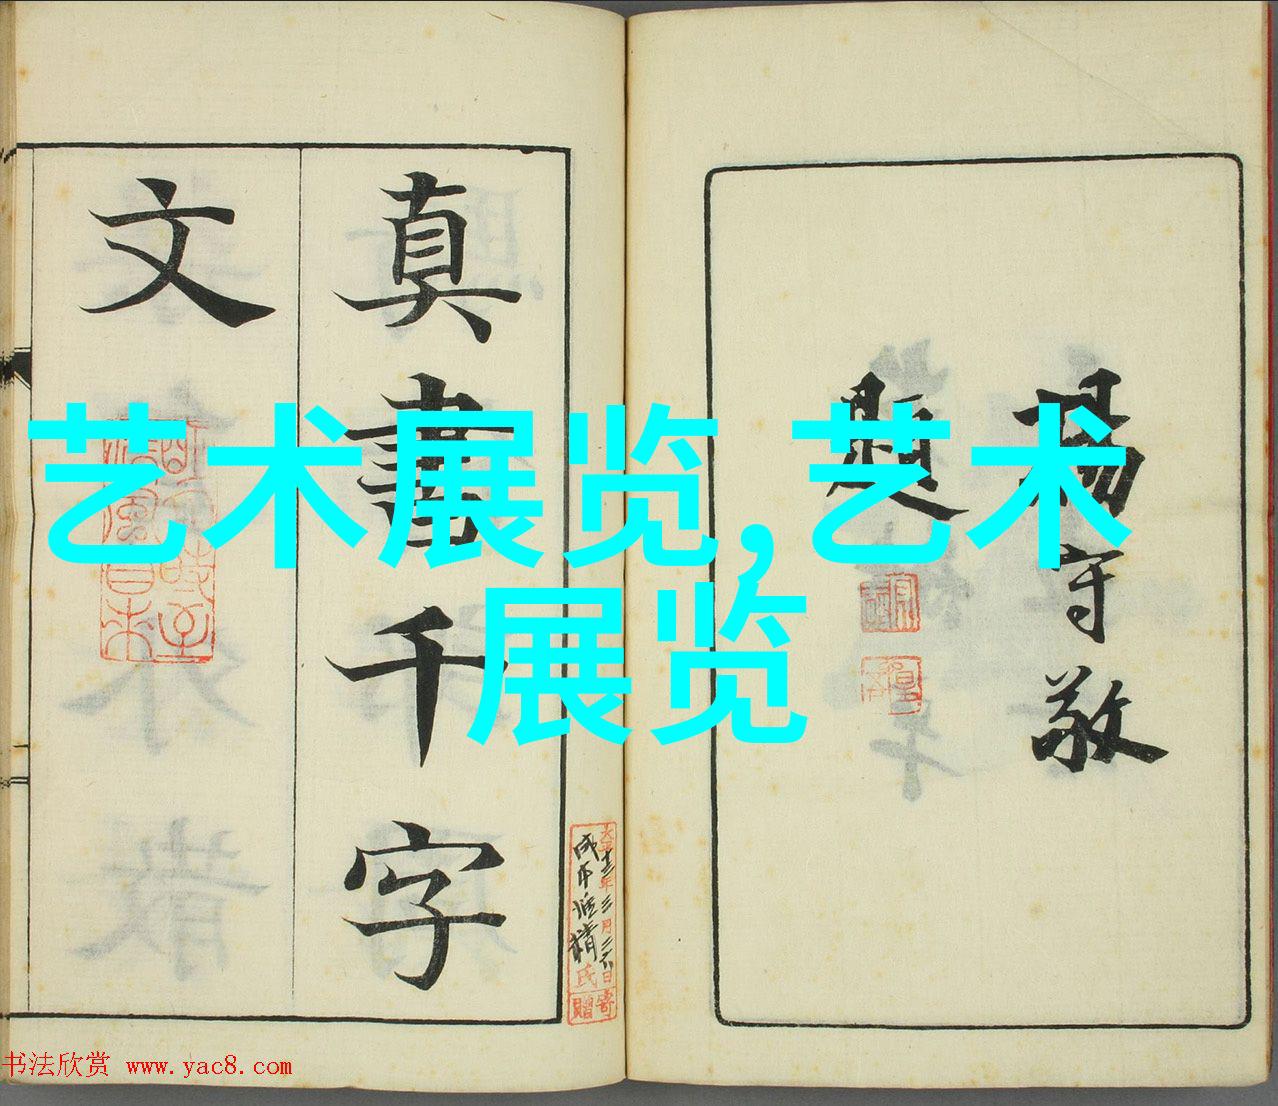 艺术展览,艺术
展览
楊守敬
題
真書千字
文
书法欣赏 www.yac8.com